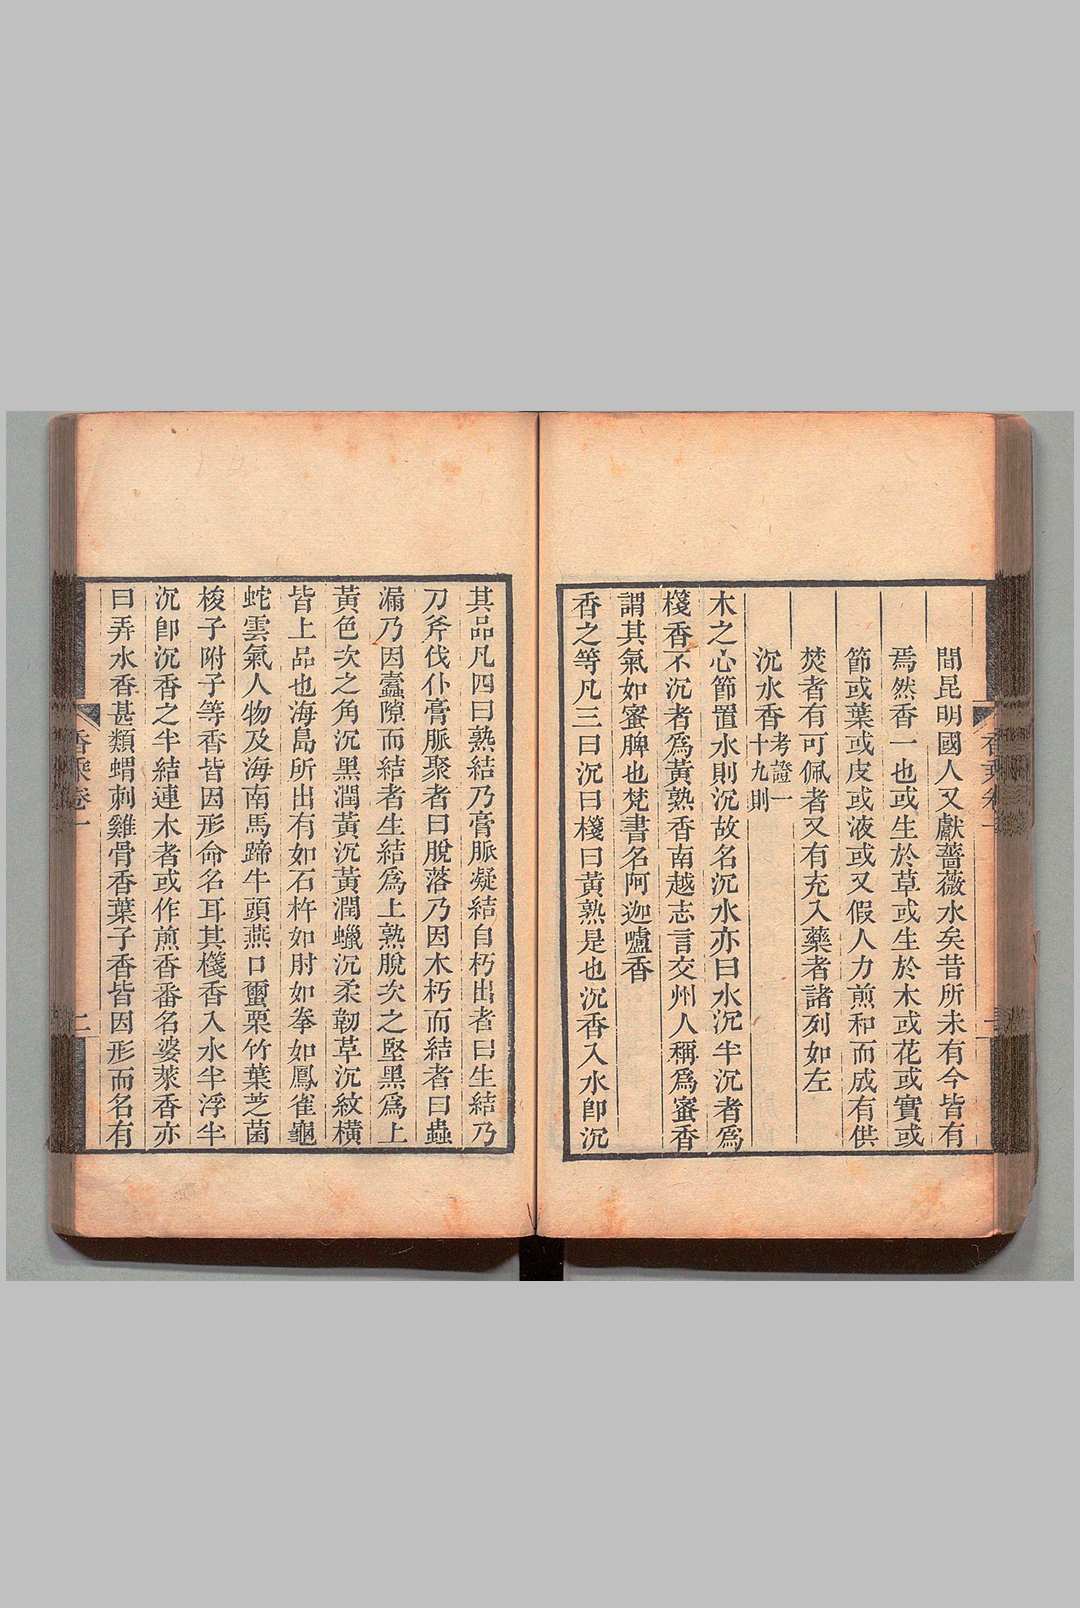 間昆明國人又獻薔薇水矣昔所未有今皆有
焉然香一也或生於草或生於木或花或實或
節或葉或皮或液或又假人力煎和而成有供
焚者有可佩者又有充入藥者諸列如左
沉水香考證一十九則
木之心節置水則沉故名沉水亦曰水沉半沉者爲
棧香不沉者爲黃熟香南越志言交州人稱爲蜜香
謂其氣如蜜脾也梵書名阿迦嚧香
香之等凡三曰沉曰棧曰黃熟是也沉香入水卽沉
其品凡四曰熟結乃膏脈凝結自朽出者曰生結乃
刀斧伐仆膏脈聚者曰脫落乃因木朽而結者曰蟲
漏乃因蠧隙而結者生結爲上熟脫次之堅黑爲上
黃色次之角沉黑潤黃沉黃潤蠟沉柔韌草沉紋橫
皆上品也海島所出有如石杵如肘如拳如鳳雀龜
蛇雲氣人物及海南馬蹄牛頭燕口蠒栗竹葉芝菌
梭子附子等香皆因形命名耳其棧香入水半浮半
沉卽沉香之半結連木者或作煎香番名婆萊香亦
曰弄水香甚類蝟刺雞骨香葉子香皆因形而名有
香乘卷一
二